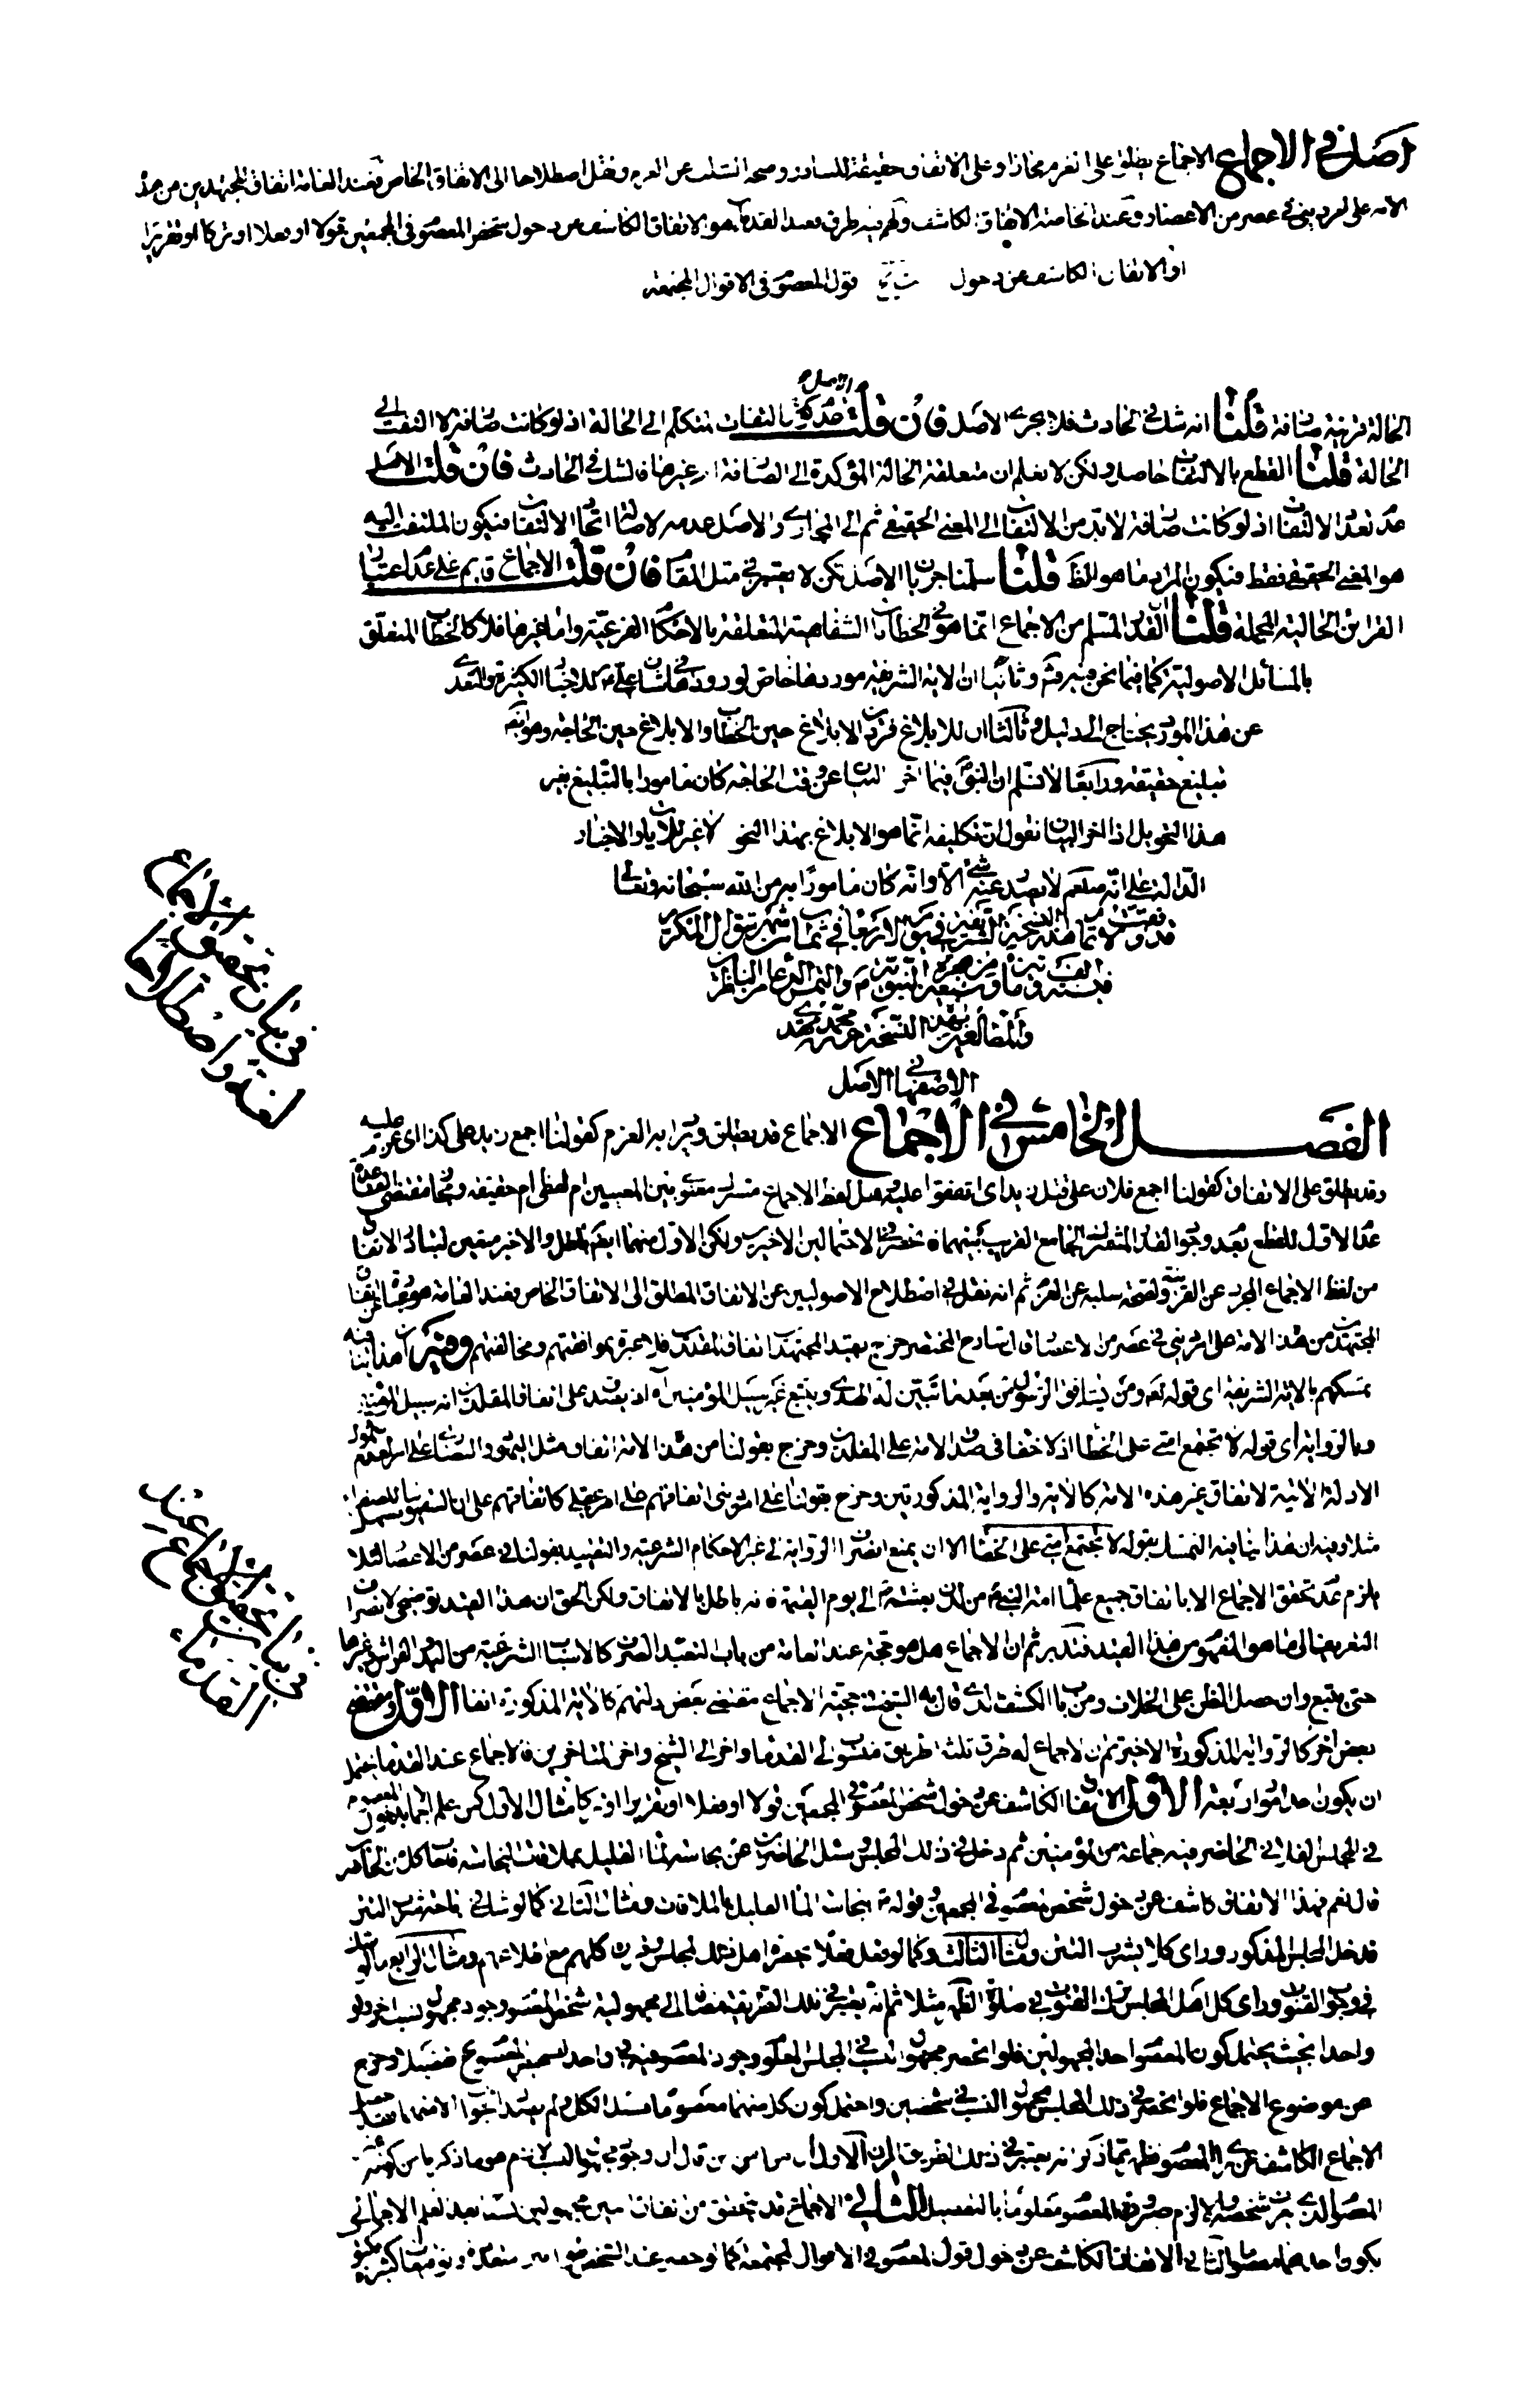 اصل في الاجماع الاجماع يطلق على العزم مجازا وعلى الاتفاق حقيقة للتبادر وصحة السلب عن العزم ونقل اصطلاحا الى الاتفاق الخاص فعند العامة اتفاق المجتهدين من هذه
الامة على امر ديني في عصر من الاعصار وعند الخاصة الاتفاق الكاشف ولهم فيه طرق فعند القدماء هو الاتفاق الكاشف عن دخول شخص المعصوم في المجمعين قولا او فعلا او تركا او تقريرا
او الاتفاق الكاشف عن دخول قول المعصوم في الاقوال المجتمعة
الحالة قرينة صارفة قلنا انه شك في الحادث فلا يجري الاصل فان قلت بالتفات المتكلم الى الحالة اذ لو كانت صارفة لا التفت الى
الحالة قلنا القطع بالالتفات حاصل ولكن لا نعلم ان متعلقه الحالة المؤكدة او الصارفة او غيرهما فالشك في الحادث فان قلت الاصل
عدم تعدد الالتفات اذ لو كانت صارفة لابد من الالتفات الى المعنى الحقيقي ثم الى المجازي والاصل عدمه لاصالة اتحاد الالتفات فيكون الملتفت اليه
هو المعنى الحقيقي فقط فيكون المراد ما هو الظاهر قلنا سلمنا جريان الاصل لكن لا يعتبر في مثل المقام فان قلت الاجماع قايم على عدم اعتبار
القرائن الحالية المجملة قلنا القدر المسلم من الاجماع انما هو في الخطابات الشفاهية المتعلقة بالاحكام الفرعية واما غيرها فلا كالخطاب المتعلق
بالمسائل الاصولية كما فيما نحن فيه وثانيا ان الاية الشريفة موردها خاص لورودها في شان علي للاخبار الكثيرة والتعدي
عن هذا المورد يحتاج الى دليل وثالثا ان للابلاغ فردين الابلاغ حين الخطاب والابلاغ حين الحاجة وهو ايضا
تبليغ حقيقة ورابعا لا نسلم ان النبي فيما اخر البيان عن وقت الحاجة كان مامورا بالتبليغ بغير
هذا النحو بل اذا اخر البيان نقول ان تكليفه انما هو الابلاغ بهذا النحو لا غير للايات والاخبار
الدالة على انه صلعم لا يصدر عنه شئ الا وانه كان مامورا به من الله سبحانه وتعالى
قد وقعت اتمام هذه النسخة الشريفة في يوم الاربعا في ثمان شهر شوال المكرم
في سنة الف ومأتين وسبعين من هجرة النبوية والتمس الدعا من الناظرين
وانا العبد
الاصفهاني الاصل
الفصل الخامس في الاجماع الاجماع قد يطلق ويراد به العزم كقولنا اجمع زيد على كذا اي عزم عليه
وقد يطلق على الاتفاق كقولنا اجمع فلان على قتل زيد اي اتفقوا عليه وهل لفظ الاجماع مشترك معنوي بين المعنيين ام لفظي ام حقيقة ومجاز مقتضى القاعدة
عدم الاول للقطع بعدم وجود القدر المشترك الجامع القريب بينهما فانحصر في الاحتمالين الاخيرين ولكن الاول منهما ايضا باطل والاخير متعين لتبادر الاتفاق
من لفظ الاجماع المجرد عن القرينة ولصحة سلبه عن العزم ثم انه نقل في اصطلاح الاصوليين عن الاتفاق المطلق الى الاتفاق الخاص فعند العامة هو اتفاق
المجتهدين من هذه الامة على امر ديني في عصر من الاعصار خرج بقيد المجتهدين اتفاق المقلدين فلا عبرة بموافقتهم ومخالفتهم وفيه
تمسكهم بالاية الشريفة اي قوله تعالى ومن يشاقق الرسول من بعد ما تبين له الهدى ويتبع غير سبيل المؤمنين اه اذ يصدق على اتفاق المقلدين انه سبيل المؤمنين
وبالرواية اي قوله لا تجتمع امتي على الخطا اذ لا خفا في صدق الامة على المقلدين وخرج بقولنا من هذه الامة اتفاق مثل اليهود والنصارى على امر لعدم شمول
الادلة الاتية لاتفاق غير هذه الامة كالاية والرواية المذكورتين وخرج بقولنا على امر ديني اتفاقهم على امر عقلي كاتفاقهم على ان السقمونيا مسهل للصفراء
مثلا وفيه ان هذا ينافيه التمسك بقوله لا تجتمع امتي على الخطا الا ان يمنع انصراف الرواية الى غير الاحكام الشرعية والتقييد بقولنا في عصر من الاعصار لئلا
يلزم عدم تحقق الاجماع الا باتفاق جميع علماء امة النبي من لدن بعثته الى يوم القيمة فانه باطل بالاتفاق ولكن الحق ان هذا القيد توضيحي لانصراف
التعريف الى ما هو المفهوم من هذا القيد فتدبر ثم ان الاجماع هل هو حجة عند العامة من باب التعبد الصرف كالاسباب الشرعية من اليد والفراش وغيرها
حتى يتبع وان حصل الظن على الخلاف ومن باب الكشف الذي قال به الشيعة في حجية الاجماع مقتضى بعض دلتهم كالاية المذكورة انفا الاول ومقتضى
بعض اخر كالرواية المذكورة الاخير ثم ان للاجماع له طرق ثلثة طريق منسوب الى القدماء واخر الى الشيخ واخر للمتاخرين فالاجماع عند القدماء يحتمل
ان يكون احد امور اربعة الاول الاتفاق الكاشف عن دخول شخص المعصوم في المجمعين قولا او فعلا او تقريرا او تركا مثال الاول كمن علم اجمالا بدخول المعصوم
في المجلس الفلاني الحاضر فيه جماعة من المؤمنين ثم دخل في ذلك المجلس وسئل الحاضرين عن نجاسة الماء القليل بملاقات النجاسة فاجاب كل من الحاضرين
قال نعم فهذا الاتفاق كاشف عن دخول شخص المعصوم في المجمعين وقوله بنجاسة الماء القليل بالملاقات ومثال الثاني كما لو شك في اباحة شرب التتن
فدخل المجلس المذكور وراى كلا يشرب التتن ومثال الثالث كما لو فعل فعلا بحضرة اهل ذلك المجلس وتقرير كلهم مع فلا منهم ومثال الرابع ما لو شك
في وجوب القنوت وراى كل اهل المجلس ترك القنوت في صلوة الظهر مثلا ثم انه يعتبر في تلك الطريقة مضافا الى مجهولية شخص المعصوم وجود مجهول نسب اخر ولو
واحدا بحيث يحتمل كون المعصوم احد المجهولين فلو انحصر مجهول النسب في المجلس المعلوم وجود المعصوم فيه في واحد تفصيلا وخرج
عن موضوع الاجماع فلو انحصر في ذلك المجلس مجهول النسب في شخصين واحتمل كون كل منهما معصوما
الاجماع الكاشف عن راي المعصوم فظهر مما ذكرنا انه يعتبر في ذلك الطريق امران الاول
المعصوم والا لزم صيرورة المعصوم معلوما بالتفصيل الثاني الاجماع قد يتحقق من اتفاق مجهولين
يكون احدهما معصوما الثاني الاتفاق الكاشف عن دخول قول المعصوم في الاقوال المجتمعة كما لو وجد عند الشخص
في بيان تحقيق الاجماع
لغة واصطلاحا
في بيان تحقيق الاجماع عند
القدماء